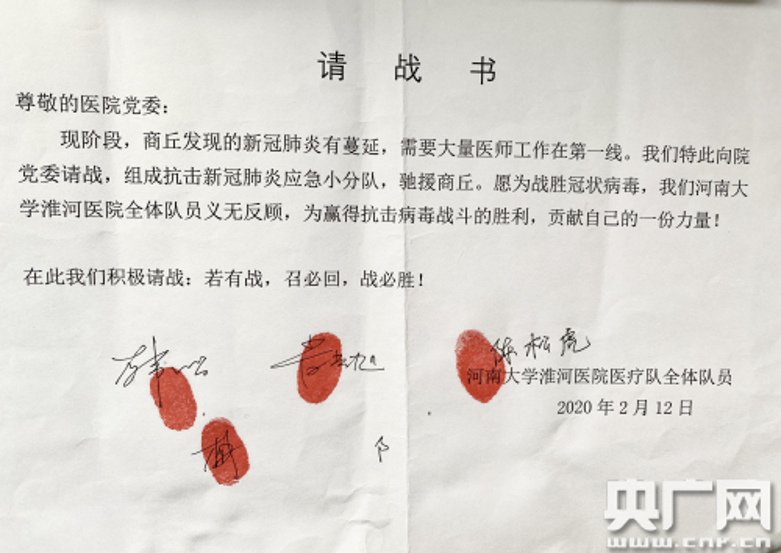 请战书
尊敬的医院党委：
现阶段，商丘发现的新冠肺炎有蔓延，需要大量医师工作在第一线。我们特此向院
党委请战，组成抗击新冠肺炎应急小分队，驰援商丘。愿为战胜冠状病毒，我们河南大
学淮河医院全体队员义无反顾，为赢得抗击病毒战斗的胜利，贡献自己的一份力量！
在此我们积极请战：若有战，召必回，战必胜！
松虎
河南大学淮河医院医疗队全体队员
2020年2月12日
央广网
www.cnr.cn